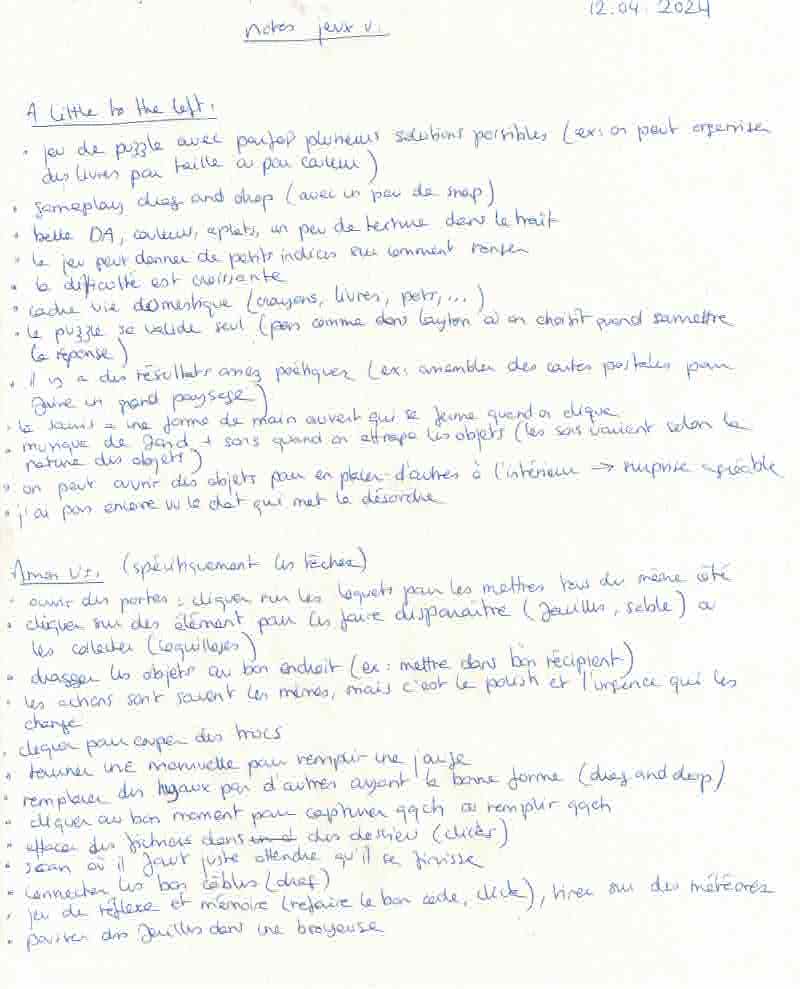 12.04.2024
notes jeux v.
A little to the left.
• jeu de puzzle avec parfois plusieurs solutions possibles (ex: on peut organiser
des livres par taille ou par couleur)
• gameplay drag and drop (avec un peu de snap)
• belle DA, couleur, aplats, un peu de texture dans le trait
• le jeu peut donner de petits indices sur comment ranger
• la difficulté est croissante
• cadre vie domestique (crayons, livres, pots, ...)
• le puzzle se valide seul (pas comme dans Layton où on choisit quand samettre
la réponse)
• il y a des résultats assez poétiques (ex: assembler des cartes postales pour
faire un grand paysage)
• la souris = une forme de main ouvert qui se ferme quand on clique
• musique de fond + sons quand on attrape les objets (les sons varient selon la
nature des objets)
• on peut ouvrir des objets pour en placer d'autres à l'intérieur → surprise agréable
• j'ai pas encore vu le chat qui met le désordre
Amon us. (spécifiquement les tâches)
• ouvrir des portes : cliquer sur les loquets pour les mettres tous du même côté
• cliquer sur des élément pour les faire disparaître (feuilles, sable) ou
les collecter (coquillages)
• dragger les objets au bon endroit (ex: mettre dans bon récipient)
• les actions sont souvent les mêmes, mais c'est le polish et l'urgence qui les
change
• cliquer pour couper des trucs
• tourner une manivelle pour remplir une jauge
• remplacer des tuyaux par d'autres ayant la bonne forme (drag and drop)
• cliquer au bon moment pour capturer qqch ou remplir qqch
• effacer des fichiers dans des dossier (clicks)
• scan où il faut juste attendre qu'il se finisse
• connecter les bon câbles (drag)
• jeu de réflexe et mémoire (refaire le bon code, click), tirer sur des météores
• passer des feuilles dans une broyeuse